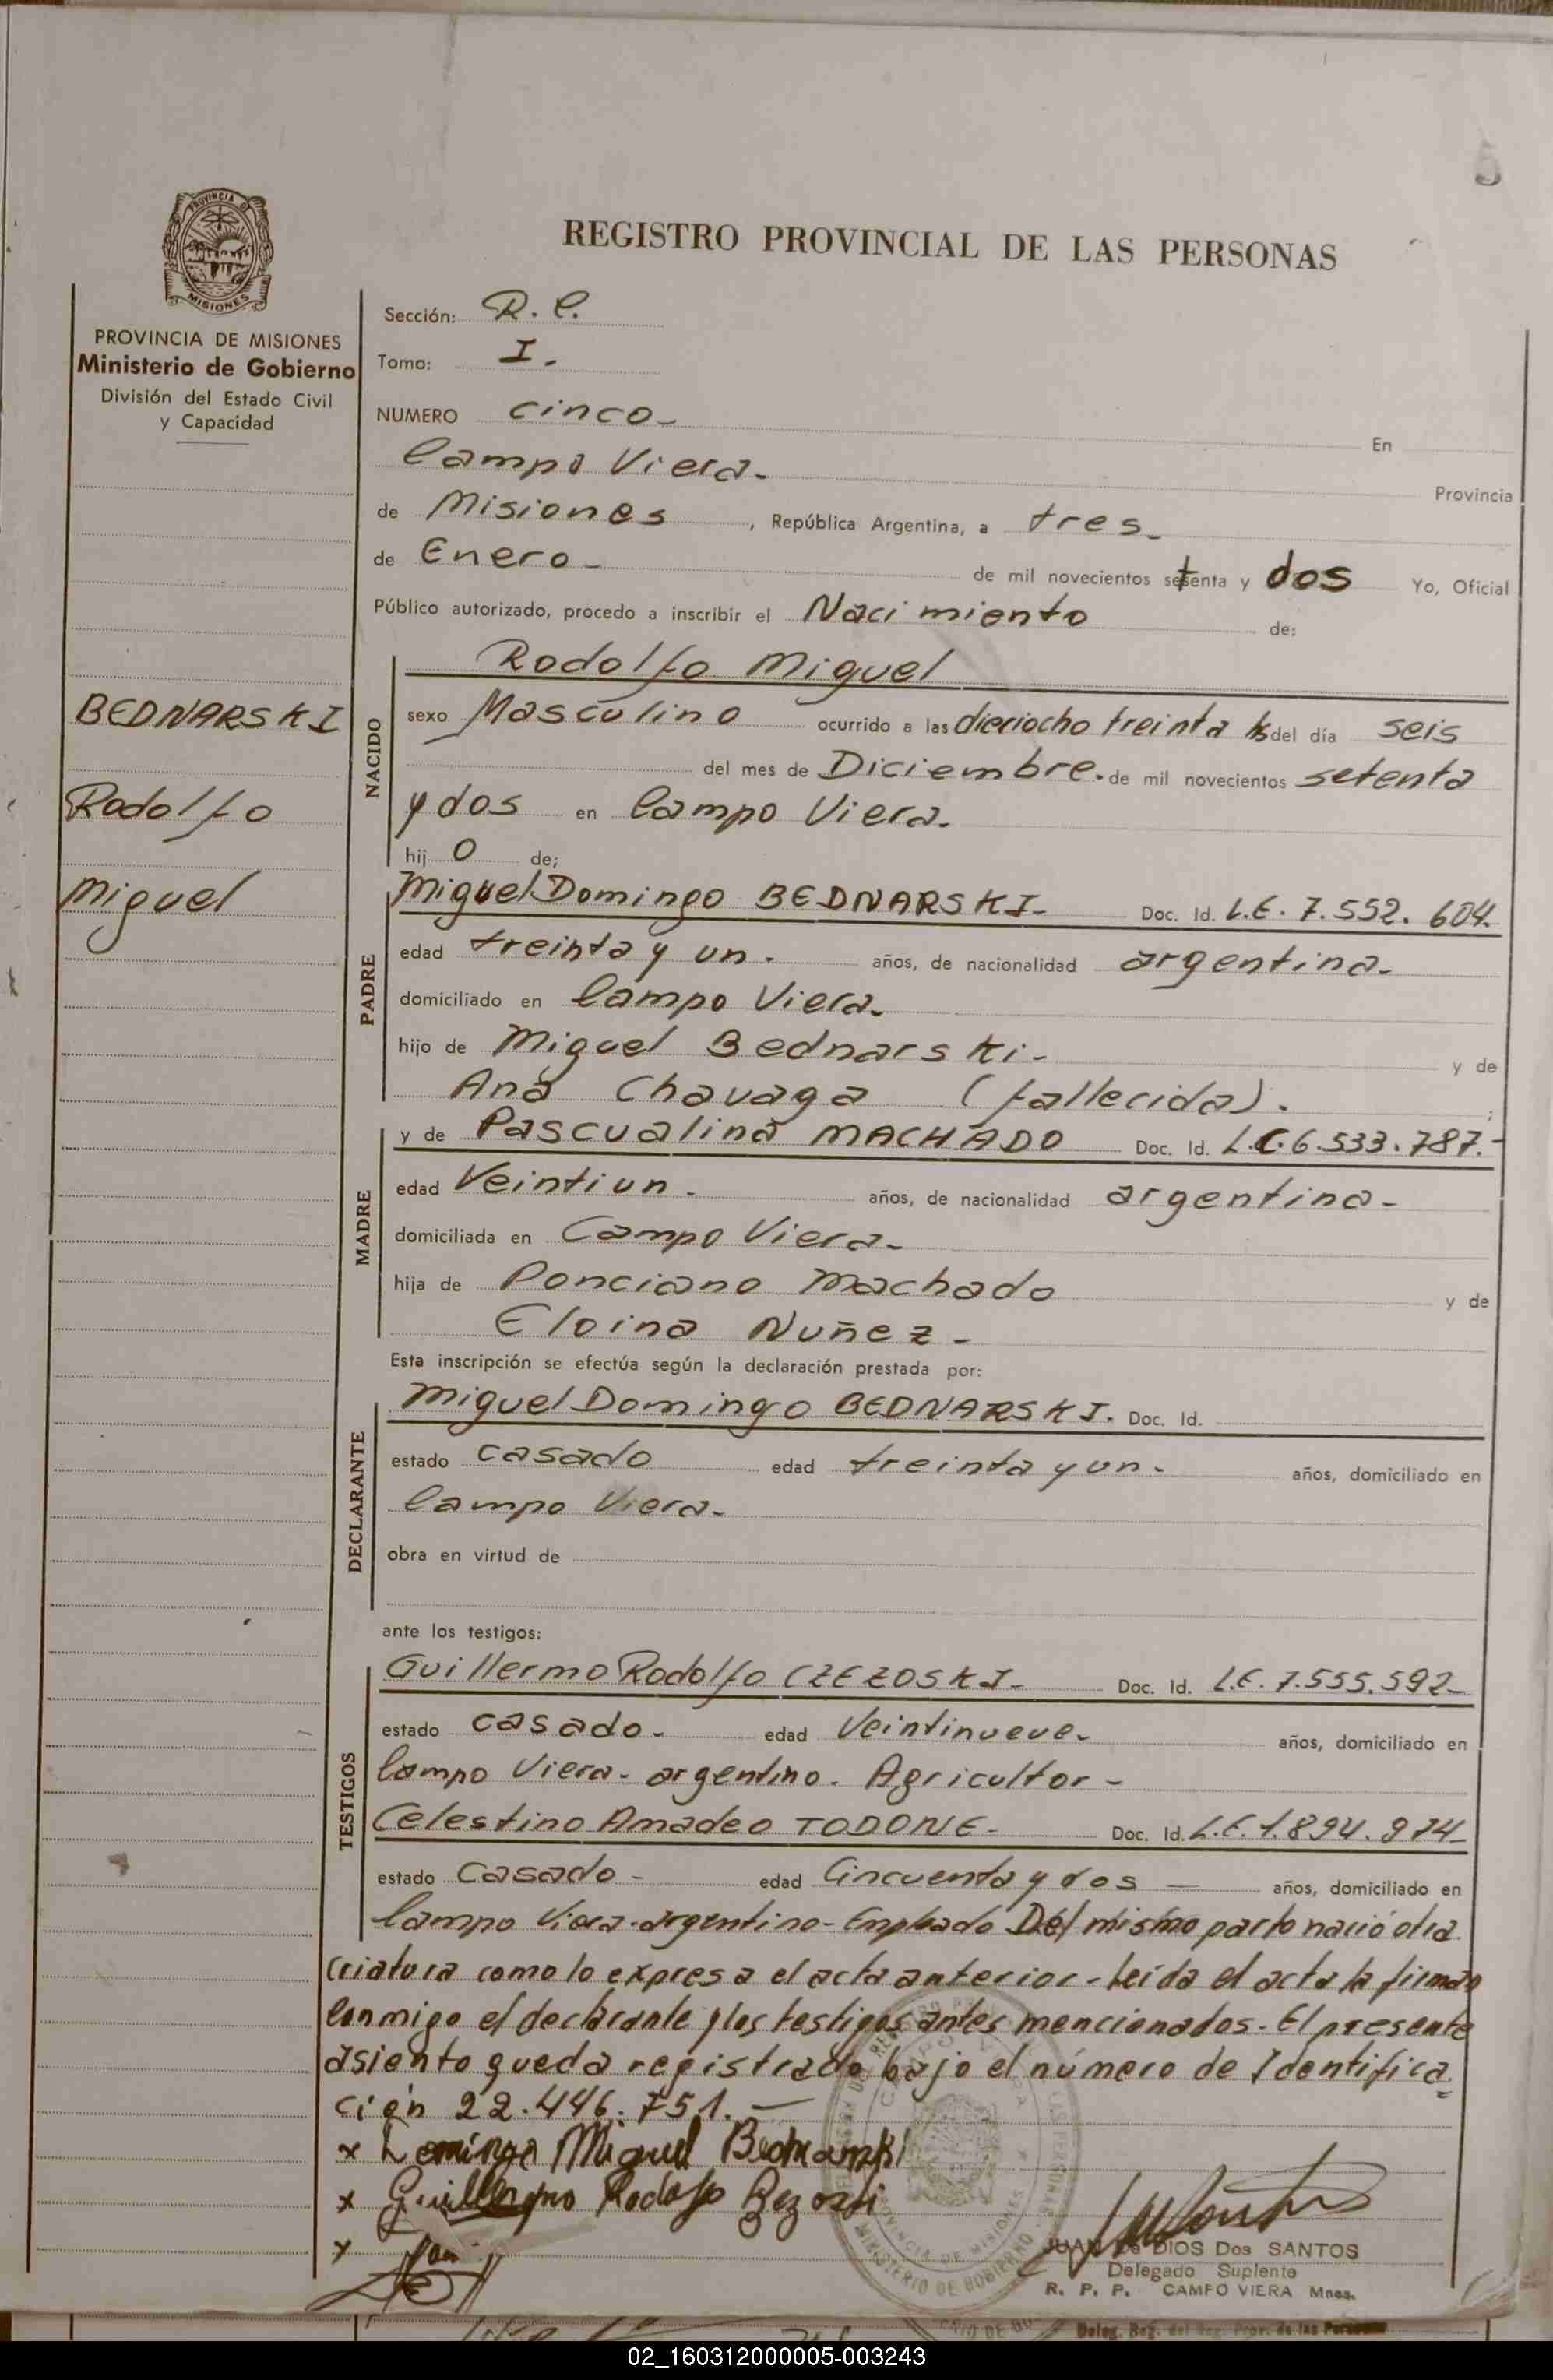 5
REGISTRO PROVINCIAL DE LAS PERSONAS
PROVINCIA DE MISIONES
PROVINCIA DE MISIONES
Ministerio de Gobierno
División del Estado Civil
y Capacidad
BEDNARSKI
Rodolfo
Miguel
Sección: R. C.
Tomo: I.
NUMERO cinco - En
Campo Viera. Provincia
de Misiones, República Argentina, a tres.
de Enero - de mil novecientos setenta y dos Yo, Oficial
Público autorizado, procedo a inscribir el Nacimiento de:
NACIDO
Rodolfo Miguel
sexo Masculino ocurrido a las dieciocho treinta hs del día seis
del mes de Diciembre. de mil novecientos setenta
y dos en Campo Viera.
hij o de;
PADRE
Miguel Domingo BEDNARSKI- Doc. Id. L.E. 7.552. 604.
edad treinta y un. años, de nacionalidad argentina.
domiciliado en Campo Viera.
hijo de Miguel Bednarski- y de
Ana Chavaga (fallecida).;
MADRE
y de Pascualina MACHADO Doc. Id. L.C. 6.533.787.-
edad Veintiun. años, de nacionalidad argentina-
domiciliada en Campo Viera-
hija de Ponciano Machado y de
Eloina Nuñez-
Esta inscripción se efectúa según la declaración prestada por:
DECLARANTE
Miguel Domingo BEDNARSKI. Doc. Id.
estado casado edad treinta y un- años, domiciliado en
Campo Viera-
obra en virtud de
ante los testigos:
TESTIGOS
Guillermo Rodolfo CZEZOSKI- Doc. Id. L.E. 7.555.592-
estado casado- edad Veintinueve- años, domiciliado en
Campo Viera- argentino. Agricultor-
Celestino Amadeo TODONE- Doc. Id. L.E. 1.894.974-
estado Casado- edad Cincuenta y dos — años, domiciliado en
Campo Viera-argentino-Empleado Del mismo parto nació otra
criatura como lo expresa el acta anterior-Leída el acta la firman
conmigo el declarante y los testigos antes mencionados-El presente
asiento queda registrado bajo el número de Identifica-
ción 22.446.751.—
x Domingo Miguel Bednarski
x Guillermo Rodolfo
x
PROVINCIA DE MISIONES
MINISTERIO DE GOBIERNO
JUAN de DIOS Dos SANTOS
Delegado Suplente
R. P. P. CAMPO VIERA Mnes.
02_160312000005-003243